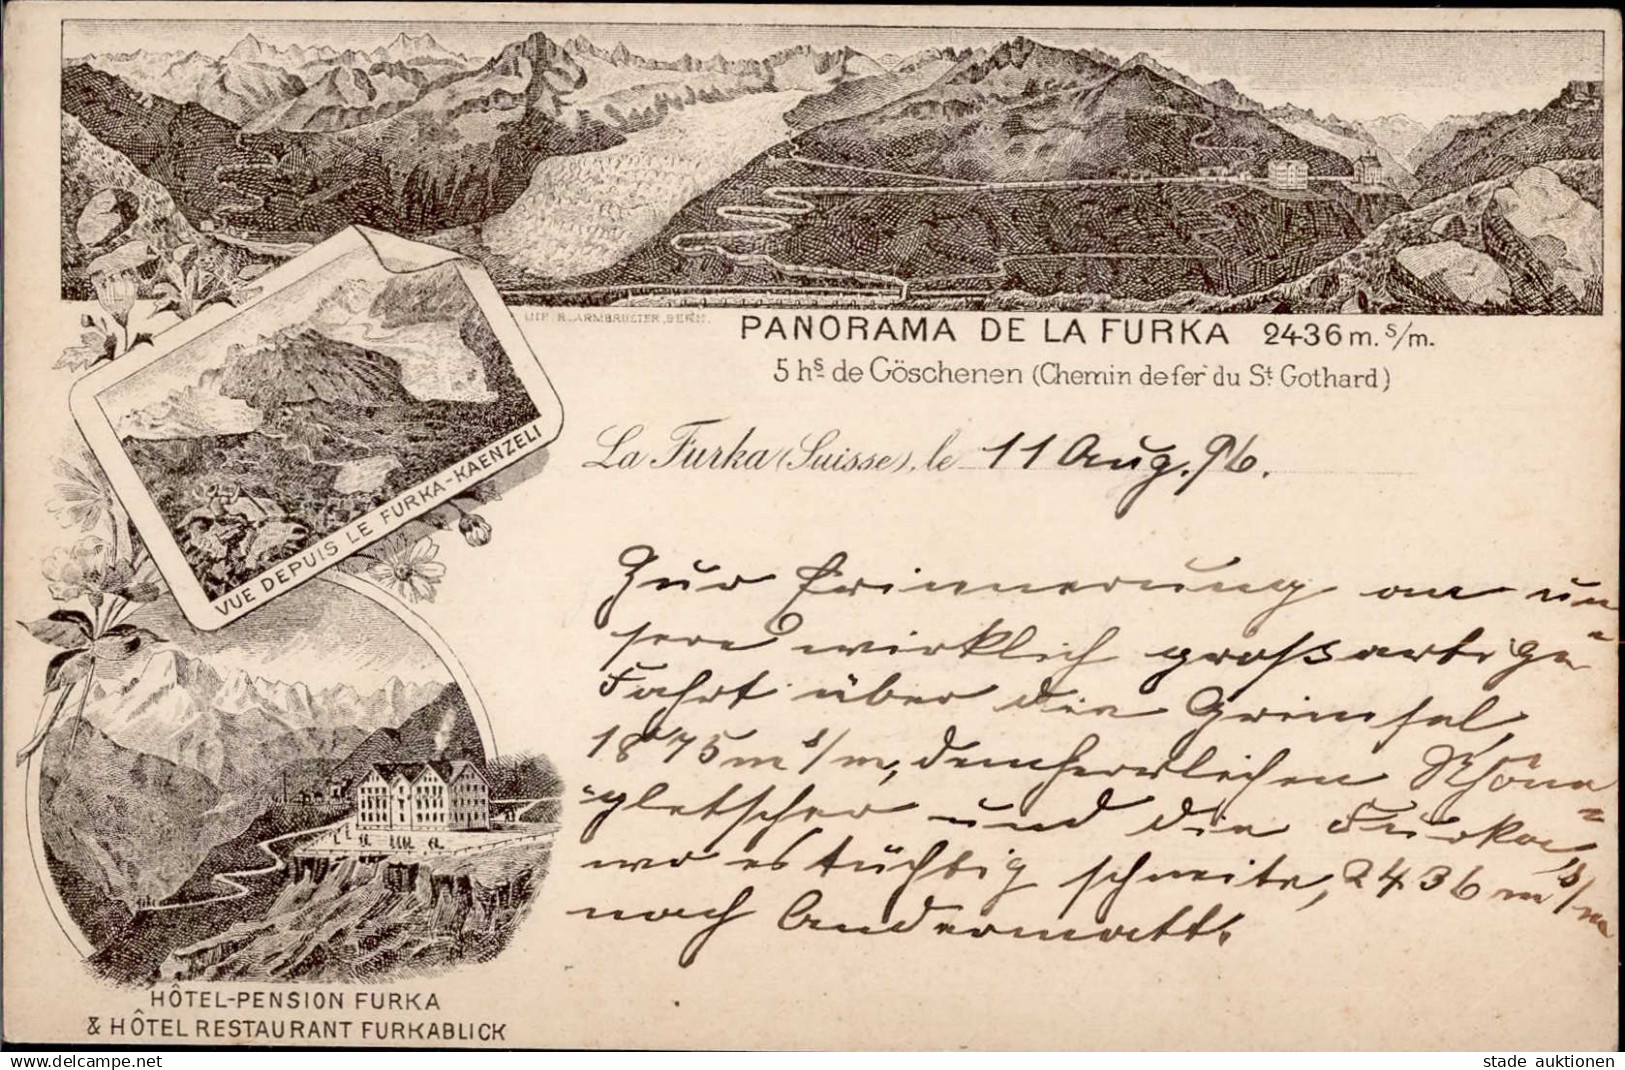 LITH. R. ARMBRUSTER, BERN.
PANORAMA DE LA FURKA 2436 m. s/m.
5 hs de Göschenen (Chemin de fer du St Gothard)
La Furka (Suisse), le 11 Aug. 96.
VUE DEPUIS LE FURKA-KAENZELI
Zur Erinnerung an un=
sere wirklich großartige
Fahrt über die Grimsel,
1875 m s/m, dem herrlichen Rhône=
gletscher und die Furka,
wo es tüchtig schneite, 2436 m s/m
nach Andermatt.
HÔTEL-PENSION FURKA
& HÔTEL RESTAURANT FURKABLICK
www.delcampe.net
stade auktionen